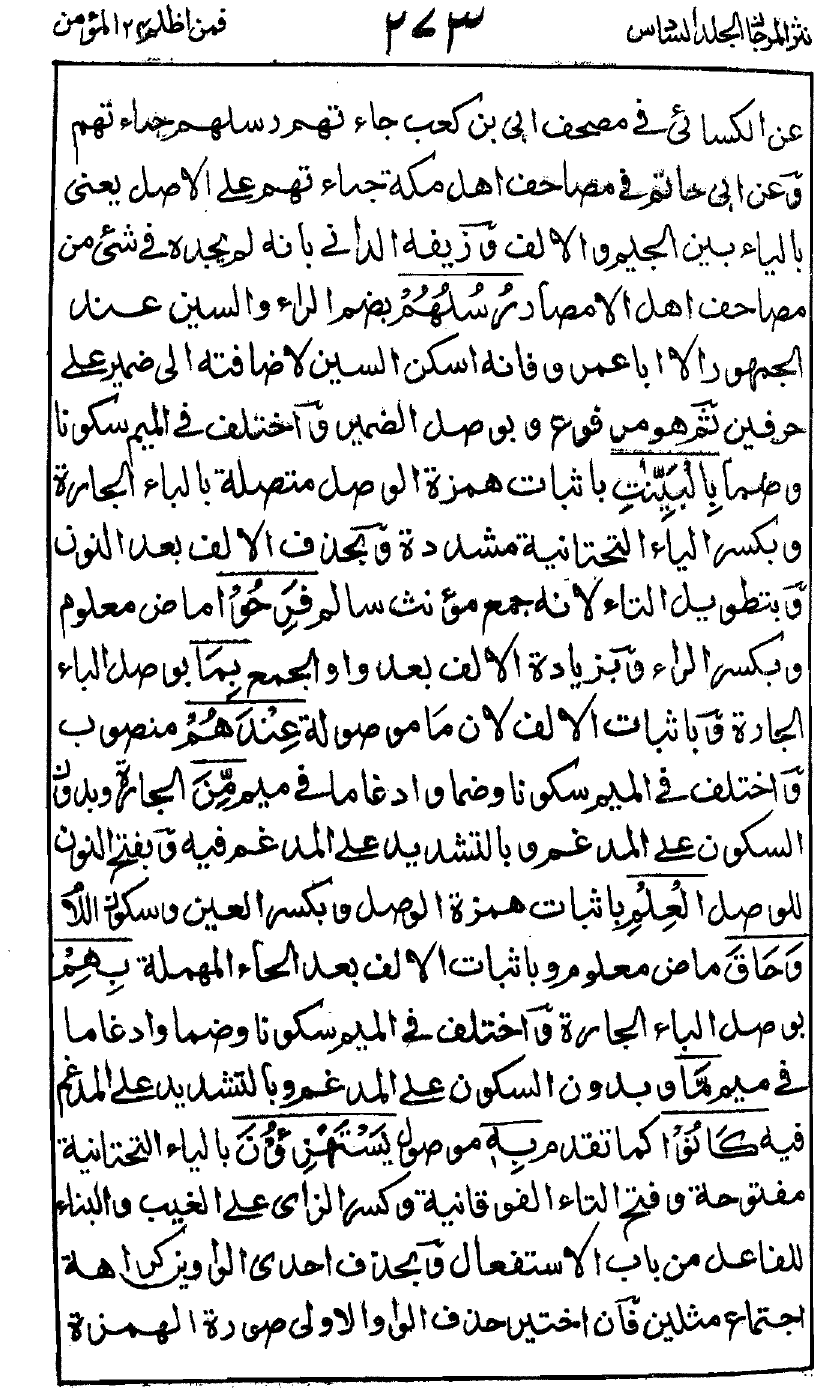 نثر المرجان الجلد السادس ٢٧٣ فمن اظلم ٢٤ المؤمن
عن الكسائى فى مصحف ابى بن كعب جاء تهم رسلهم جياء تهم
وَعن ابى حاتم فى مصاحف اهل مكة جياء تهم على الاصل يعنى
بالياء بين الجيم والالف وَزيفه الدانى بانه لم يجده فى شئ من
مصاحف اهل الامصار رُسُلُهُمْ بضم الراء والسين عند
الجمهور الا ابا عمرو فانه اسكن السين لاضافته الى ضمير على
حرفين ثم هو مرفوع و بوصل الضمير وَاختلف فى الميم سكونا
وضما بِالْبَيِّنٰتِ باثبات همزة الوصل متصلة بالباء الجارة
وبكسر الياء التحتانية مشددة وَبحذف الالف بعد النون
وَبتطويل التاء لانه جمع مؤنث سالم فَرِحُوْا ماض معلوم
وبكسر الراء وَبزيادة الالف بعد واو الجمع بِمَا بوصل الباء
الجارة وَباثبات الالف لان مَا موصولة عِنْدَهُمْ منصوب
وَاختلف فى الميم سكونا وضما وادغاما فى ميم مِّنَ الجارة وبدون
السكون على المدغم و بالتشديد على المدغم فيه وَبفتح النون
للوصل الْعِلْمِ باثبات همزة الوصل وبكسر العين وسكون اللام
وَحَاقَ ماض معلوم وباثبات الالف بعد الحاء المهملة بِهِمْ
بوصل الباء الجارة وَاختلف فى الميم سكونا وضما وادغاما
فى ميم مَّا وبدون السكون على المدغم و بالتشديد على المدغم
فيه كَانُوْا كما تقدم بِهٖ موصول يَسْتَهْزِءُوْنَ بالياء التحتانية
مفتوحة وفتح التاء الفوقانية وكسر الزاى على الغيب والبناء
للفاعل من باب الاستفعال وَبحذف احدى الواوين كراهة
اجتماع مثلين فَان اختير حذف الواو الاولى صورة الهمزة